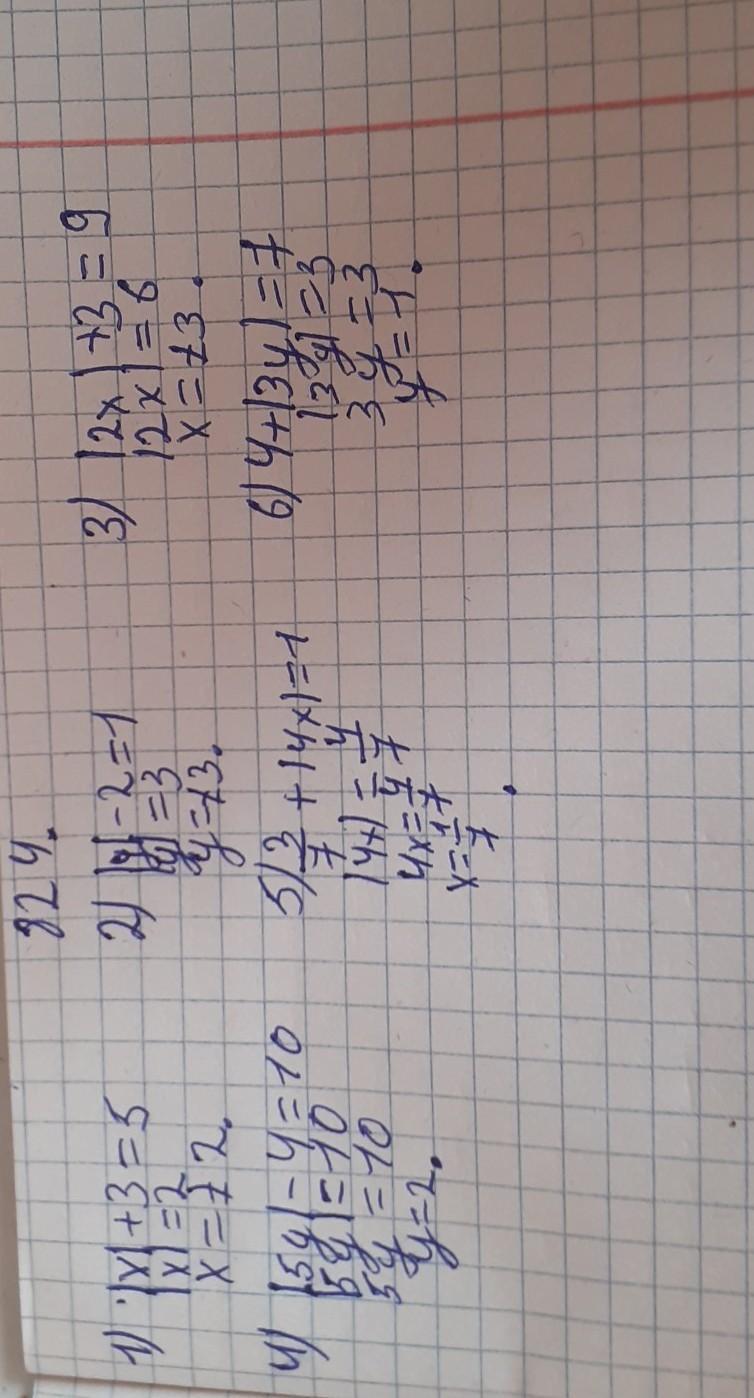 824.
1) |x|+3=5
|x|=2
x=±2.
2) |y|-2=1
|y|=3
y=±3.
3) |2x|+3=9
|2x|=6
x=±3.
4) |5y|-4=10
|5y|=10
5y=10
y=2.
5) 3/7+|4x|=1
|4x|=4/7
4x=4/7
x=1/7.
6) 4+|3y|=7
|3y|=3
3y=3
y=1.